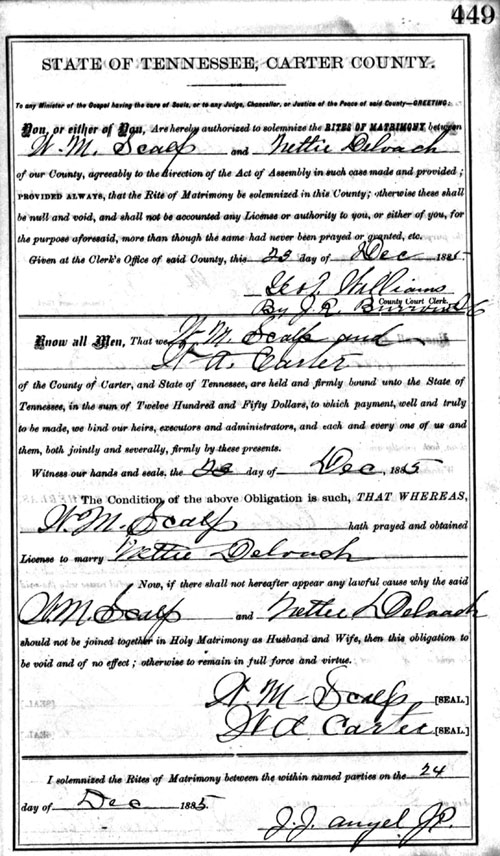 449
STATE OF TENNESSEE, CARTER COUNTY.
To any Minister of the Gospel having the care of Souls, or to any Judge, Chancellor, or Justice of the Peace of said County—GREETING:
You, or either of You, Are hereby authorized to solemnize the RITES OF MATRIMONY between
W. M. Scalf and Nettie Deloach
of our County, agreeably to the direction of the Act of Assembly in such case made and provided;
PROVIDED ALWAYS, that the Rite of Matrimony be solemnized in this County; otherwise these shall
be null and void, and shall not be accounted any License or authority to you, or either of you, for
the purpose aforesaid, more than though the same had never been prayed or granted, etc.
Given at the Clerk's Office of said County, this 23 day of Dec 1885.
Geo T. Williams
County Court Clerk.
By J. R. Burrow D C
Know all Men, That we W. M. Scalf and
W A. Carter
of the County of Carter, and State of Tennessee, are held and firmly bound unto the State of
Tennessee, in the sum of Twelve Hundred and Fifty Dollars, to which payment, well and truly
to be made, we bind our heirs, executors and administrators, and each and every one of us and
them, both jointly and severally, firmly by these presents.
Witness our hands and seals, the 23 day of Dec, 1885
The Condition of the above Obligation is such, THAT WHEREAS,
W. M. Scalf hath prayed and obtained
License to marry Nettie Deloach
Now, if there shall not hereafter appear any lawful cause why the said
W M. Scalf and Nettie Deloach
should not be joined together in Holy Matrimony as Husband and Wife, then this obligation to
be void and of no effect; otherwise to remain in full force and virtue.
W. M Scalf [SEAL.]
W A Carter [SEAL.]
I solemnized the Rites of Matrimony between the within named parties on the 24
day of Dec 1885
J. J. Angel J P.